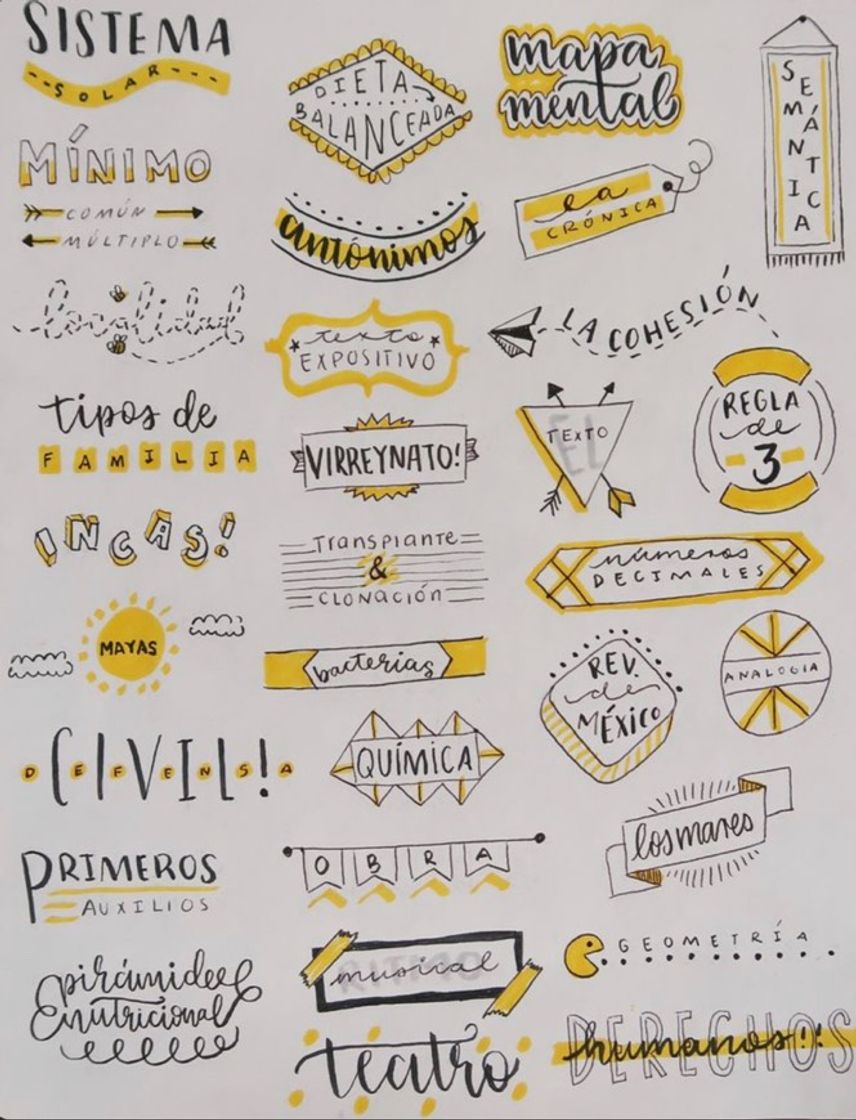 SISTEMA
SOLAR
MÍNIMO
COMÚN
MÚLTIPLO
tipos de
FAMILIA
INCAS!
MAYAS
DEFENSA
CIVIL!
PRIMEROS
AUXILIOS
pirámide
nutricional
DIETA
BALANCEADA
antónimos
texto
EXPOSITIVO
VIRREYNATO!
Transplante
&
CLONACIÓN
bacterias
QUÍMICA
OBRA
RITMO
musical
teatro
mapa
mental
la
CRÓNICA
SEMÁNTICA
LA COHESIÓN
EL
TEXTO
REGLA
de
3
números
DECIMALES
REV.
de
MÉXICO
ANALOGIA
los mares
GEOMETRÍA
DERECHOS
humanos!!